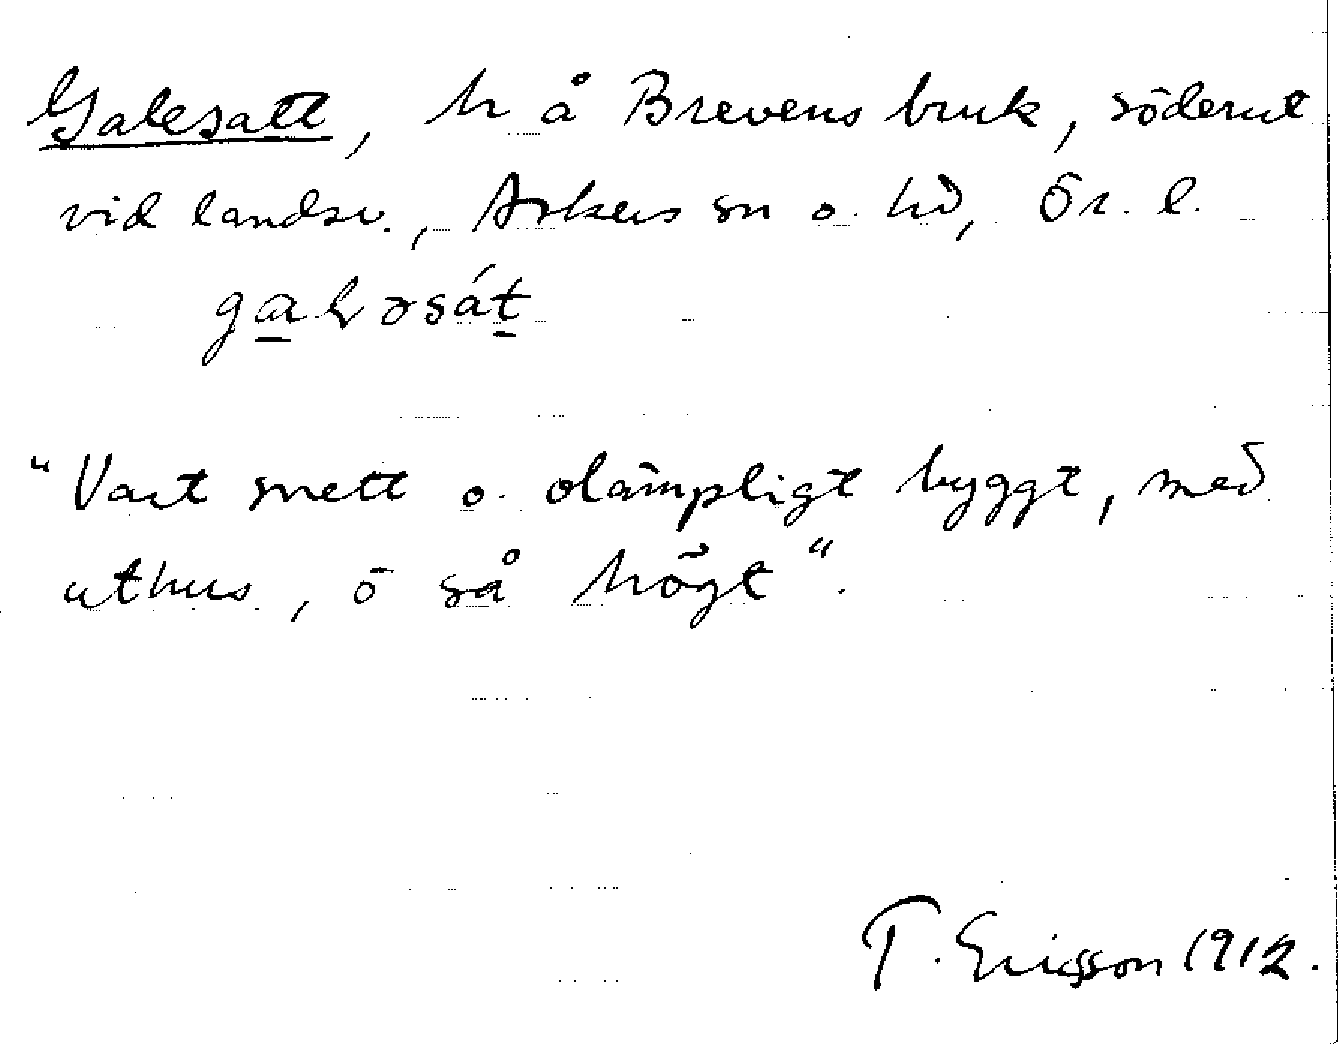 Galesatt, h å Brevens bruk, söderut
vid landsv., Askers sn o. hd, Ör. l.
"Vart snett o. olämpligt byggt, med
uthus, ö så högt".
T. Ericsson 1912.